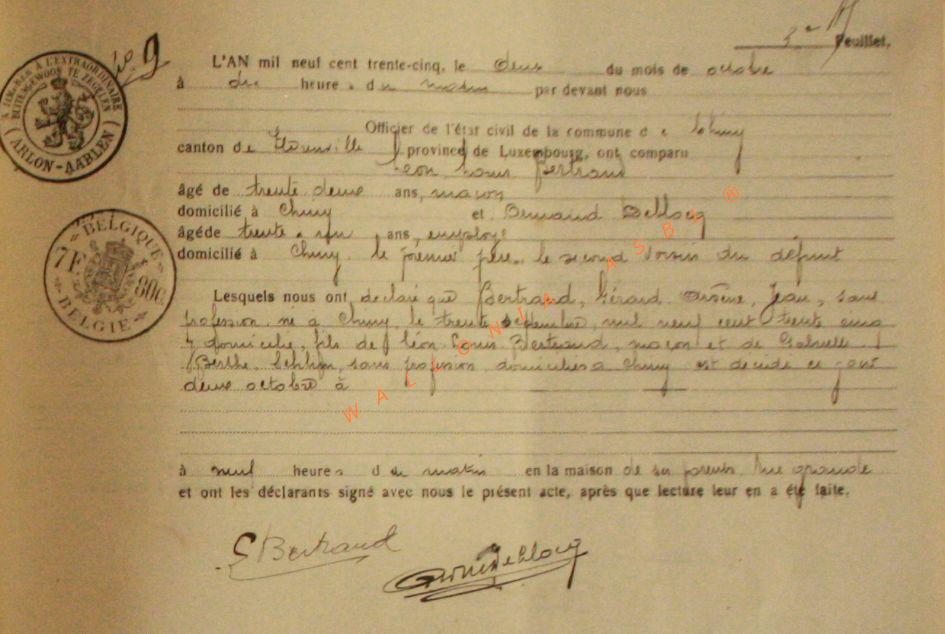 3e Feuillet.
No 9
L'AN mil neuf cent trente-cinq, le deux du mois de octobre
à dix heures du matin par devant nous
Officier de l'état civil de la commune de Chiny
canton de Florenville province de Luxembourg, ont comparu
Léon Louis Bertrand
âgé de trente deux ans, maçon
domicilié à Chiny et Armand Deblocq
âgé de trente ans, employé
domicilié à Chiny le premier père le second voisin du défunt
Lesquels nous ont déclaré que Bertrand, Gérard Arsène, Jean, sans
profession né à Chiny le trente septembre, mil neuf cent trente cinq
y domicilié, fils de Léon Louis Bertrand, maçon et de Gabrielle
Berthe sans profession domiciliés à Chiny est décédé ce jour
deux octobre à
à neuf heures du matin en la maison de ses parents Rue grande
et ont les déclarants signé avec nous le présent acte, après que lecture leur en a été faite.
Bertrand
Deblocq
TIMBRÉ A L'EXTRAORDINAIRE
BUITENGEWOON TE ZEGELEN
(ARLON-AARLEN)
BELGIQUE
7F 80C.
BELGIE
WALLONIA ASBL ®